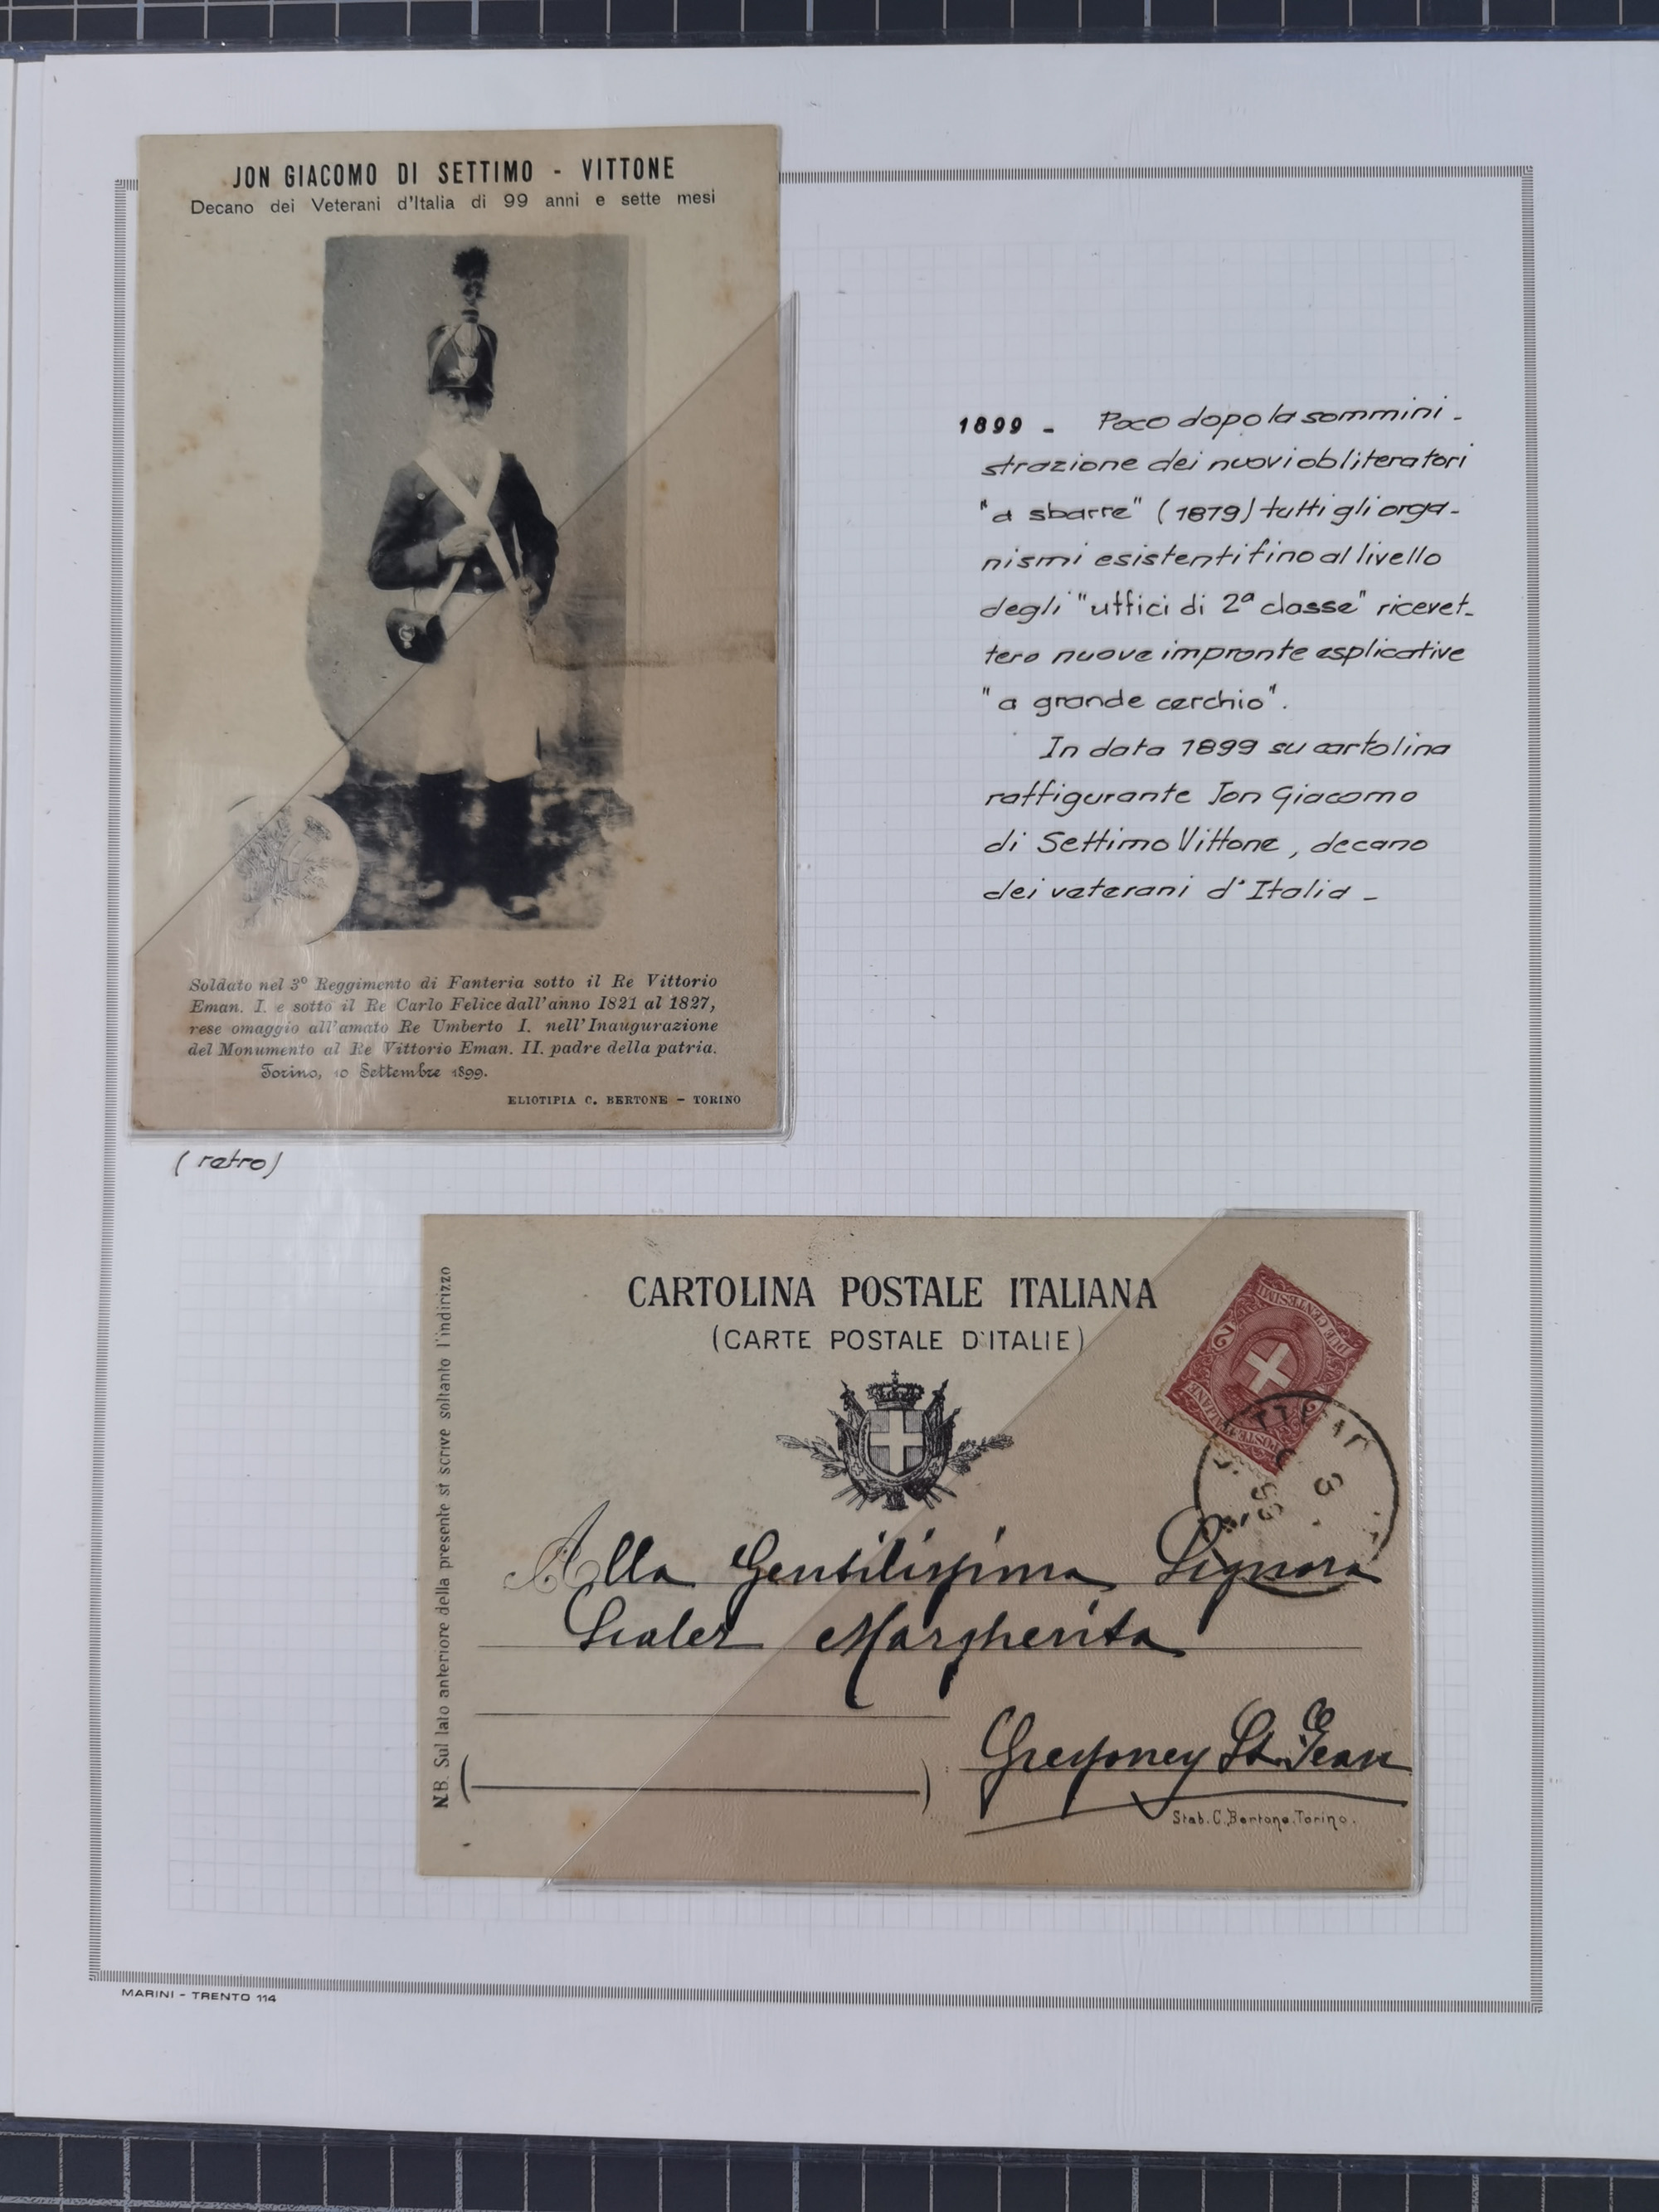 JON GIACOMO DI SETTIMO - VITTONE
Decano dei Veterani d'Italia di 99 anni e sette mesi
Soldato nel 3º Reggimento di Fanteria sotto il Re Vittorio
Eman. I. e sotto il Re Carlo Felice dall'anno 1821 al 1827,
rese omaggio all'amato Re Umberto I. nell'Inaugurazione
del Monumento al Re Vittorio Eman. II. padre della patria.
Torino, 10 Settembre 1899.
ELIOTIPIA C. BERTONE - TORINO
(retro)
1899 - Poco dopo la sommini-
strazione dei nuovi obliteratori
"a sbarre" (1879) tutti gli orga-
nismi esistenti fino al livello
degli "uffici di 2ª classe" ricevet-
tero nuove impronte esplicative
"a grande cerchio".
In data 1899 su cartolina
raffigurante Jon Giacomo
di Settimo Vittone, decano
dei veterani d'Italia -
N.B. Sul lato anteriore della presente si scrive soltanto l'indirizzo
CARTOLINA POSTALE ITALIANA
(CARTE POSTALE D'ITALIE)
POSTE ITALIANE
2
2
DUE CENTESIMI
Alla Gentilissima Signora
Margherita
Gressoney St. Jean
Stab. C. Bertone. Torino.
MARINI - TRENTO 114